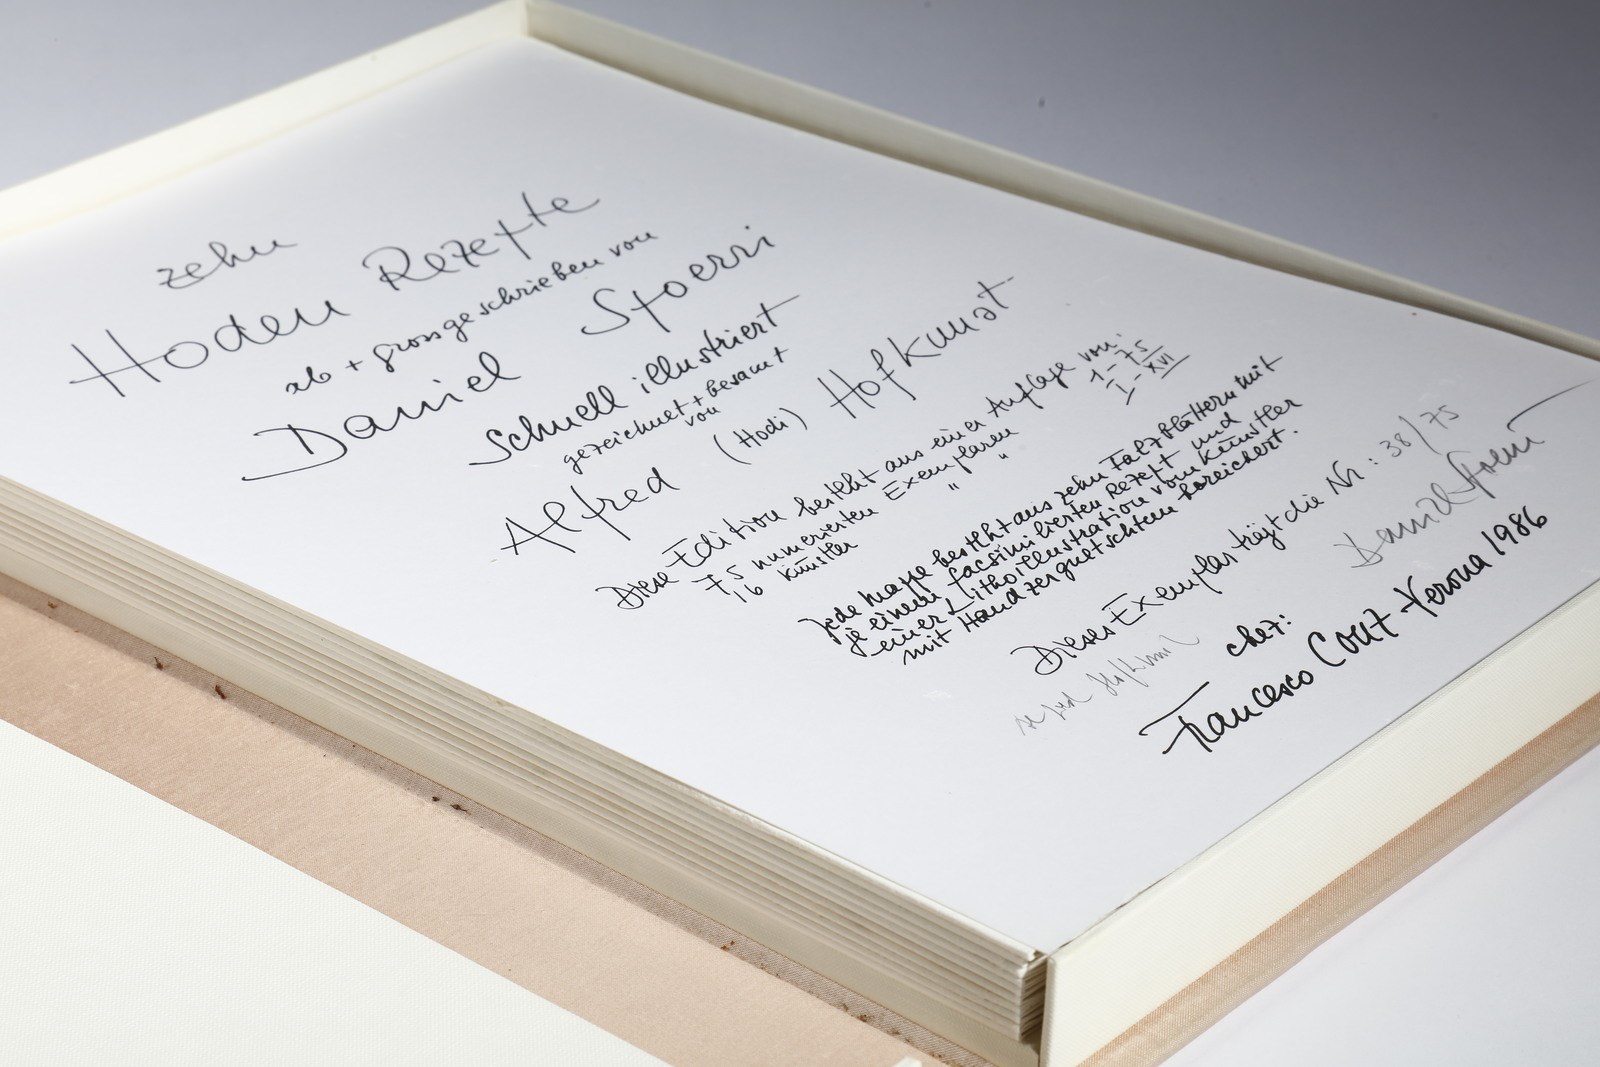 zehn
Hoden Rezepte
ab + grossgeschrieben von
Daniel Spoerri
schnell illustriert
gezeichnet + besamt
von
Alfred (Hodi) Hofkunst
Diese Edition besteht aus einer Auflage von:
75 numerierten Exemplaren 1-75
16 Künstler " I-XVI
Jede Mappe besteht aus zehn Falzblättern mit
je einem facsimilierten Rezept und
einer Lithoillustration vom Künstler
mit Hand zerquetschtem bereichert.
Dieses Exemplar trägt die Nr: 38/75
Daniel Spoerri
chez:
Francesco Conz - Verona 1986